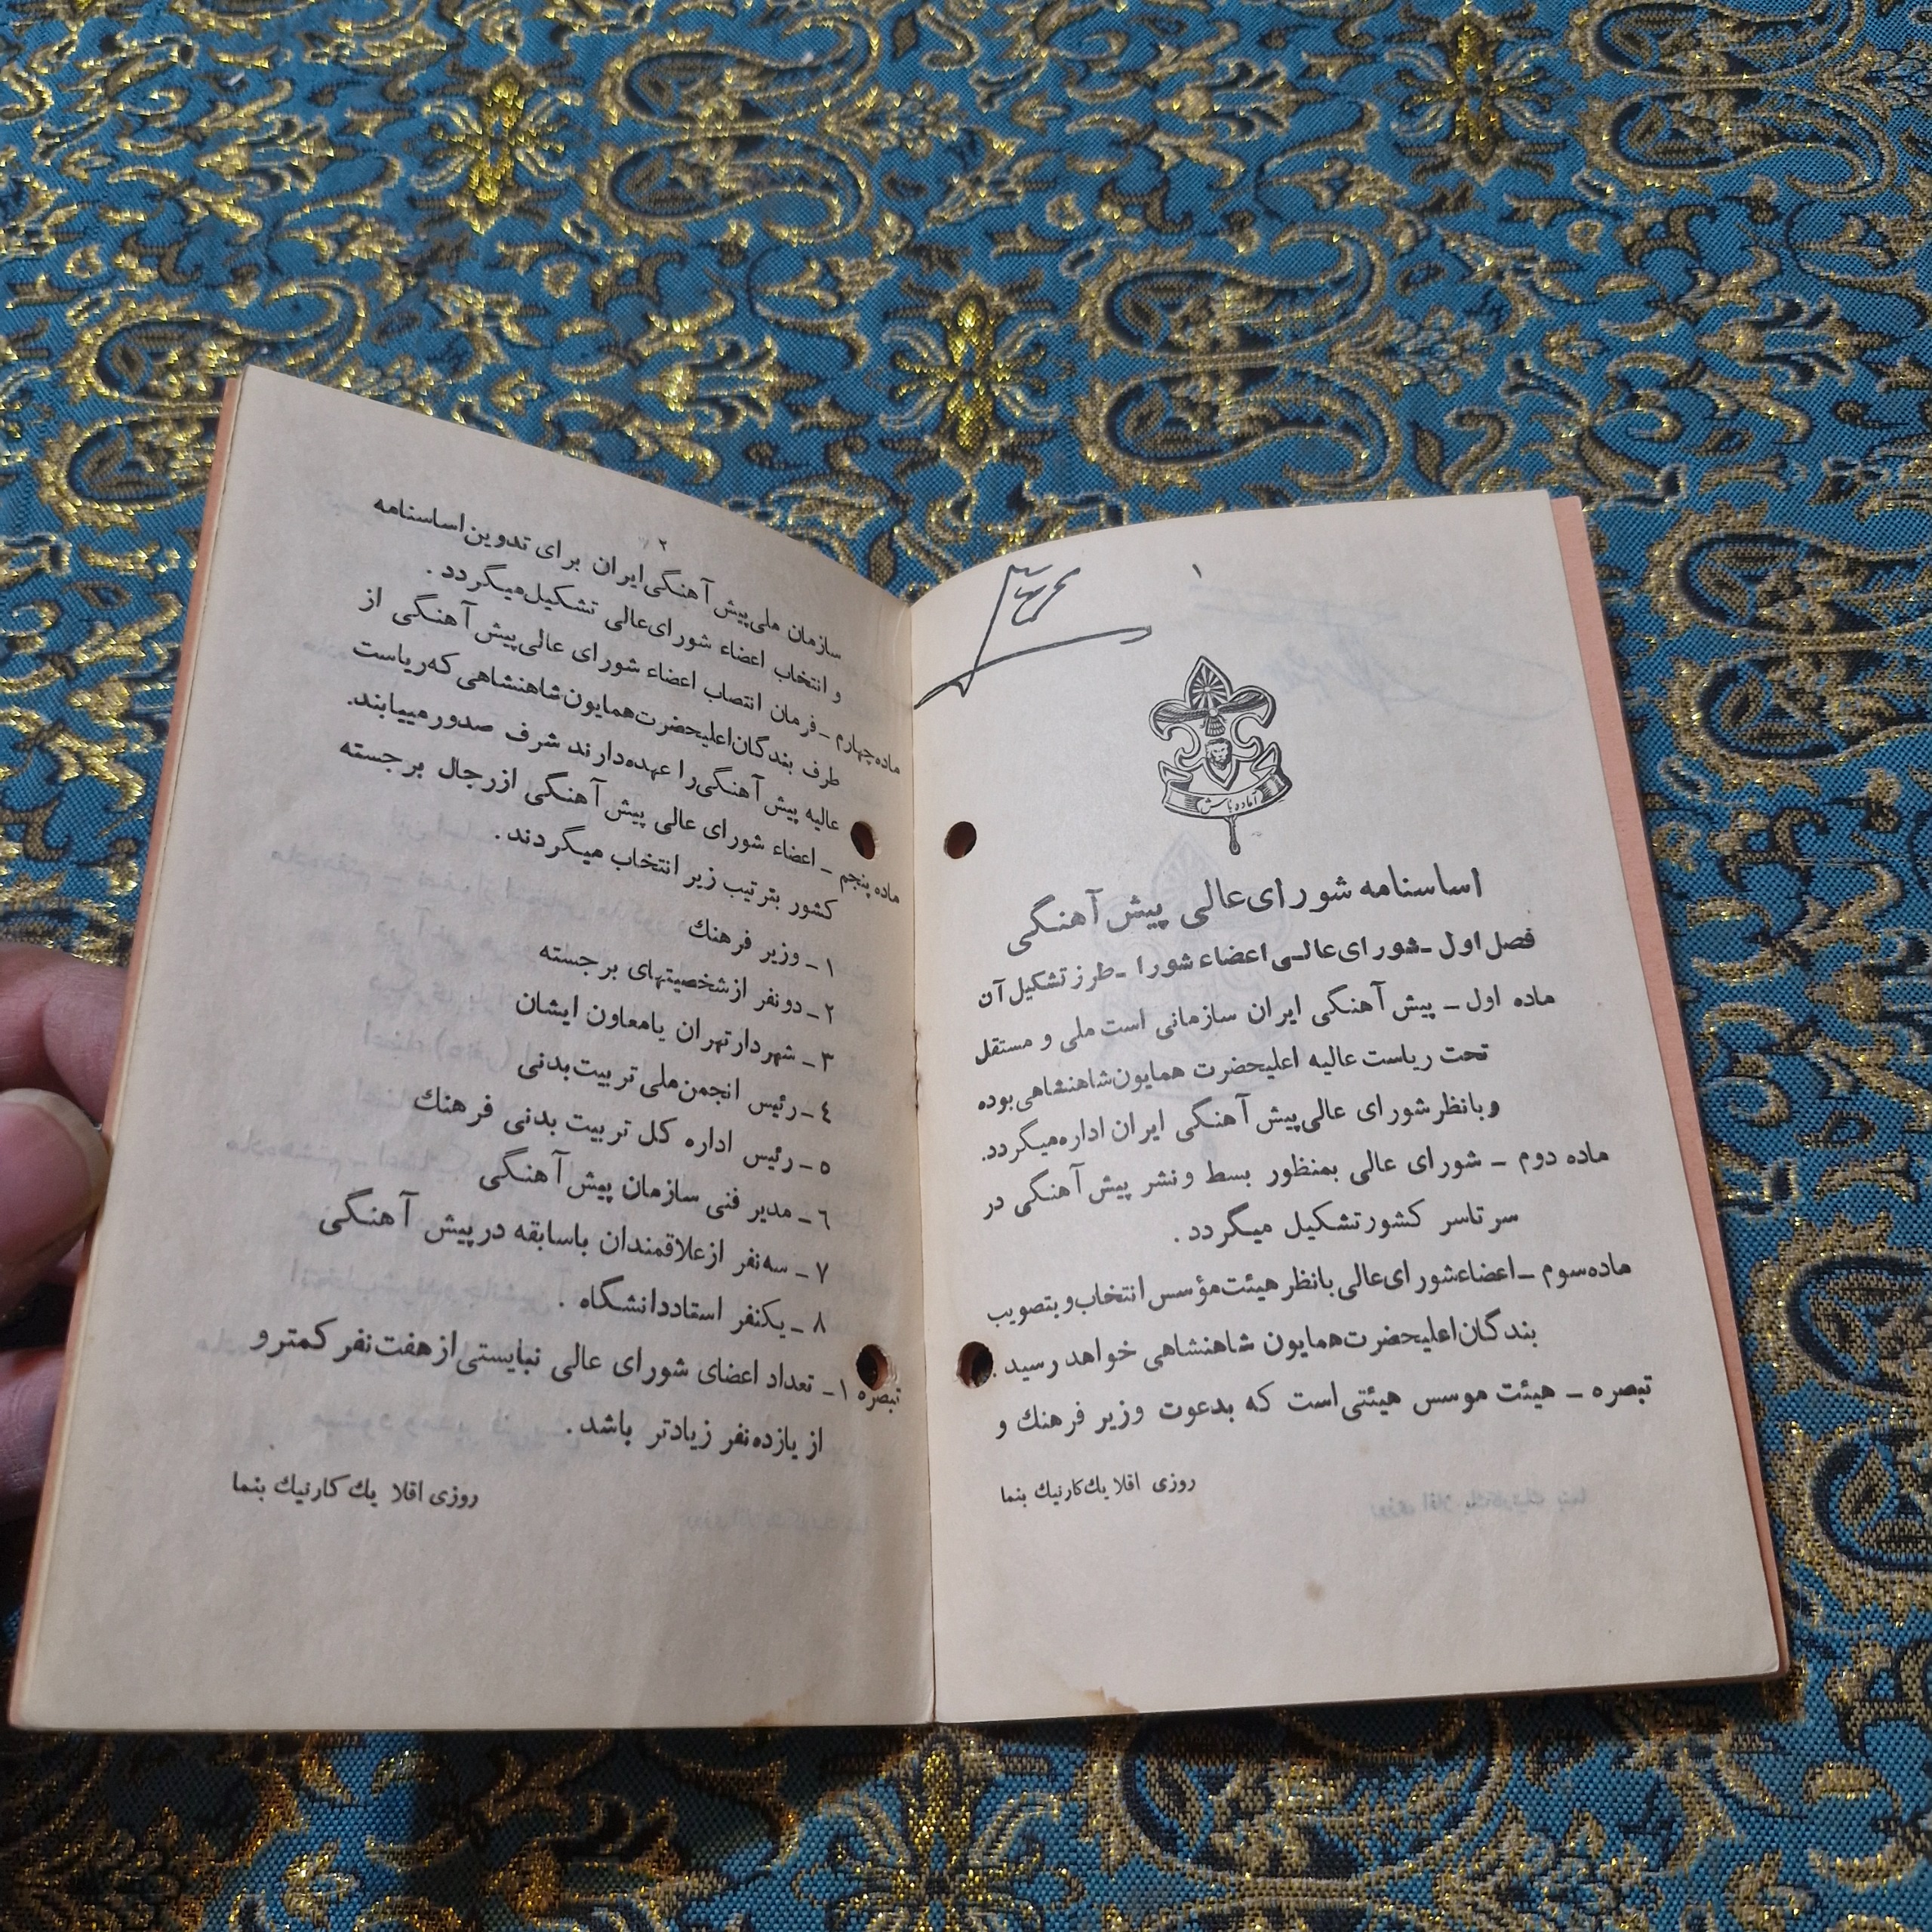 ۱
آماده باش
اساسنامه شورای عالی پیش آهنگی
فصل اول ـ شورای عالی اعضاء شورا ـ طرز تشکیل آن
ماده اول ـ پیش آهنگی ایران سازمانی است ملی و مستقل
تحت ریاست عالیه اعلیحضرت همایون شاهنشاهی بوده
و بانظر شورای عالی پیش آهنگی ایران اداره میگردد.
ماده دوم ـ شورای عالی بمنظور بسط و نشر پیش آهنگی در
سر تاسر کشور تشکیل میگردد .
ماده سوم ـ اعضاء شورای عالی بانظر هیئت مؤسس انتخاب و بتصویب
بندگان اعلیحضرت همایون شاهنشاهی خواهد رسید .
تبصره ـ هیئت موسس هیئتی است که بدعوت وزیر فرهنك و
روزی اقلا یك کار نیك بنما
۲
سازمان ملی پیش آهنگی ایران برای تدوین اساسنامه
و انتخاب اعضاء شورای عالی تشکیل میگردد .
ماده چهارم ـ فرمان انتصاب اعضاء شورای عالی پیش آهنگی از
طرف بندگان اعلیحضرت همایون شاهنشاهی که ریاست
عالیه پیش آهنگی را عهده دارند شرف صدور مییابند.
ماده پنجم ـ اعضاء شورای عالی پیش آهنگی از رجال برجسته
کشور بترتیب زیر انتخاب میگردند .
۱ ـ وزیر فرهنك
۲ ـ دو نفر از شخصیتهای برجسته
۳ ـ شهردار تهران یا معاون ایشان
٤ ـ رئیس انجمن ملی تربیت بدنی
٥ ـ رئیس اداره کل تربیت بدنی فرهنك
٦ ـ مدیر فنی سازمان پیش آهنگی
۷ ـ سه نفر از علاقمندان باسابقه در پیش آهنگی
۸ ـ یکنفر استاد دانشگاه .
تبصره ۱ ـ تعداد اعضای شورای عالی نبایستی از هفت نفر کمتر و
از یازده نفر زیادتر باشد .
روزی اقلا یك کار نیك بنما